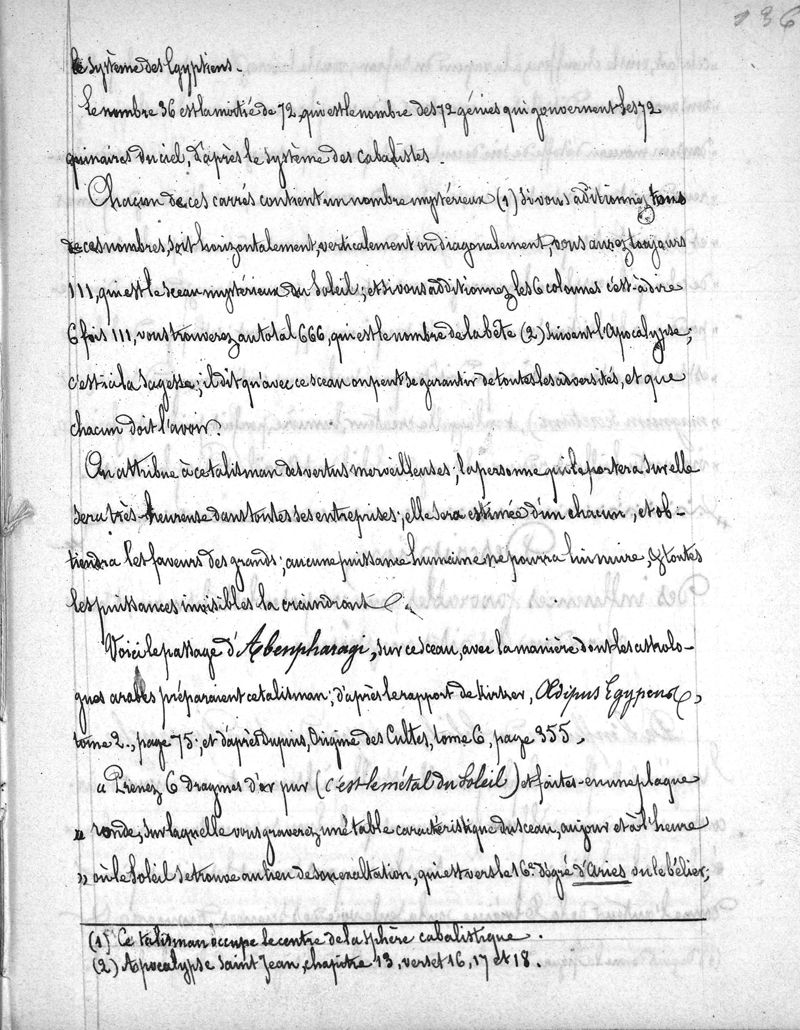 136
le système des Egyptiens.
Le nombre 36 est la moitié de 72, qui est le nombre des 72 génies qui gouvernent les 72
quinaires du ciel, d'après le système des cabalistes.
Chacun de ces carrés contient un nombre mystérieux (1) Si vous additionnez tous
de ces nombres, soit horizontalement, verticalement ou diagonalement, vous aurez toujours
111, qui est le sceau mystérieux du Soleil; et si vous additionnez les 6 colonnes c'est-à-dire
6 fois 111, vous trouverez au total 666, qui est le nombre de la bête (2) suivant l'Apocalypse;
c'est ici la sagesse; il dit qu'avec ce sceau on peut se garantir de toutes les adversités, et que
chacun doit l'avoir.
On attribue à ce talisman des vertus merveilleuses; la personne qui le portera sur elle
sera très-heureuse dans toutes ses entreprises; elle sera estimée d'un chacun, et ob-
tiendra les faveurs des grands; aucune puissance humaine ne pourra lui nuire, & toutes
les puissances invisibles la craindront.
Voici le passage d'Abenpharagi, sur ce sceau, avec la manière dont les astrolo-
gues arabes préparaient ce talisman; d'après le rapport de Kirker, Œdipus
tome 2., page 75; et d'après Dupuis, Origine des Cultes, tome 6, page 355.
« Prenez 6 dragmes d'or pur (c'est le métal du Soleil) et faites-en une plaque
» ronde, sur laquelle vous graverez une table caractéristique du sceau, au jour et à l'heure
» où le Soleil se trouve au lieu de son exaltation, qui est vers le 16e dégré d'Aries ou le bélier;
(1) Ce talisman occupe le centre de la sphère cabalistique.
(2) Apocalypse Saint Jean, chapitre 13, verset 16, 17 et 18.